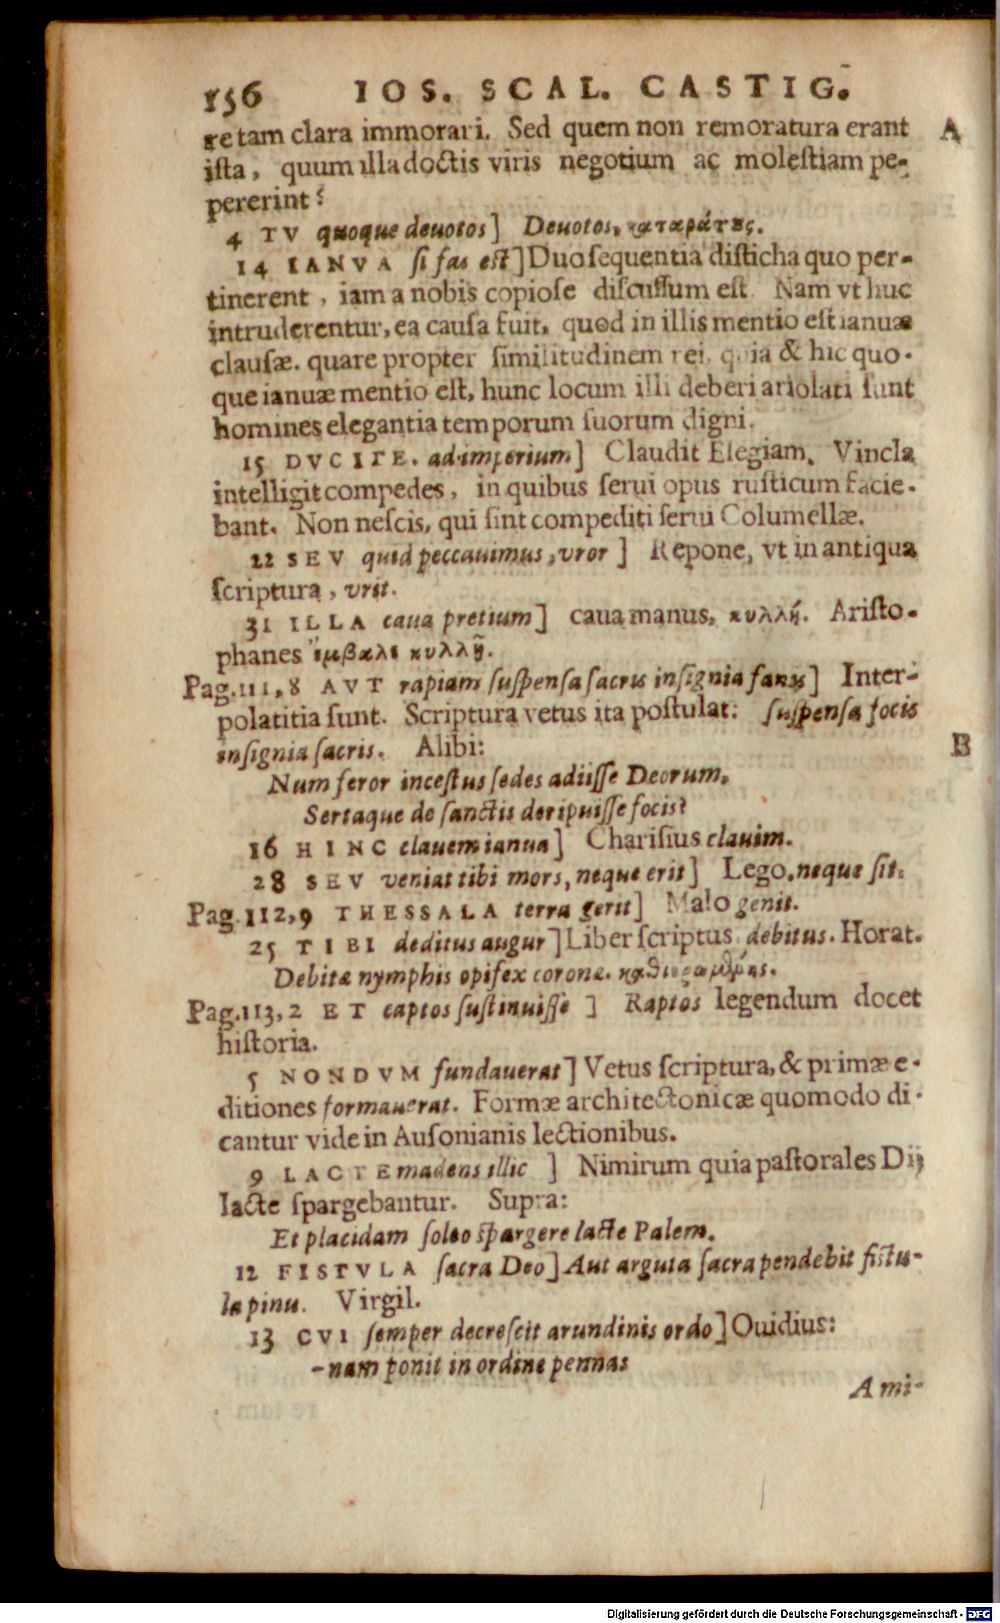 156 IOS. SCAL. CASTIG.
re tam clara immorari. Sed quem non remoratura erant A
ista, quum illa doctis viris negotium ac molestiam pe-
pererint?
4 TV quoque deuotos] Deuotos, καταράτους.
14 IANVA si fas est] Duo sequentia disticha quo per-
tinerent, iam a nobis copiose discussum est. Nam vt huc
intruderentur, ea causa fuit, quod in illis mentio est ianuæ
clausæ. quare propter similitudinem rei, quia & hic quo-
que ianuæ mentio est, hunc locum illi deberi ariolati sunt
homines elegantia temporum suorum digni.
15 DVCITE. ad imperium.] Claudit Elegiam. Vincla
intelligit compedes, in quibus serui opus rusticum facie-
bant. Non nescis, qui sint compediti serui Columellæ.
22 SEV quid peccauimus, vror] Repone, vt in antiqua
scriptura, vrit.
31 ILLA caua pretium] caua manus, κυλλή. Aristo-
phanes ἔμβαλε κυλλῇ.
Pag. 111, 8 AVT rapiam suspensa sacris insignia fanis] Inter-
polatitia sunt. Scriptura vetus ita postulat: suspensa focis
insignia sacris. Alibi: B
Num feror incestus sedes adiisse Deorum,
Sertaque de sanctis deripuisse focis?
16 HINC clauem ianua] Charisius clauim.
28 SEV veniat tibi mors, neque erit] Lego, neque sit.
Pag. 112, 9 THESSALA terra gerit] Malo genit.
25 TIBI deditus augur] Liber scriptus debitus. Horat.
Debitæ nymphis opifex coronæ.
Pag. 113, 2 ET captos sustinuisse] Raptos legendum docet
historia.
5 NONDVM fundauerat] Vetus scriptura, & primæ e-
ditiones formauerat. Formæ architectonicæ quomodo di-
cantur vide in Ausonianis lectionibus.
9 LACTE madens illic ] Nimirum quia pastorales Dij
lacte spargebantur. Supra:
Et placidam soleo spargere lacte Palem.
12 FISTVLA sacra Deo] Aut arguta sacra pendebit fistu-
la pinu. Virgil.
13 CVI semper decrescit arundinis ordo] Ouidius:
-nam ponit in ordine pennas
A mi-
Digitalisierung gefördert durch die Deutsche Forschungsgemeinschaft - DFG